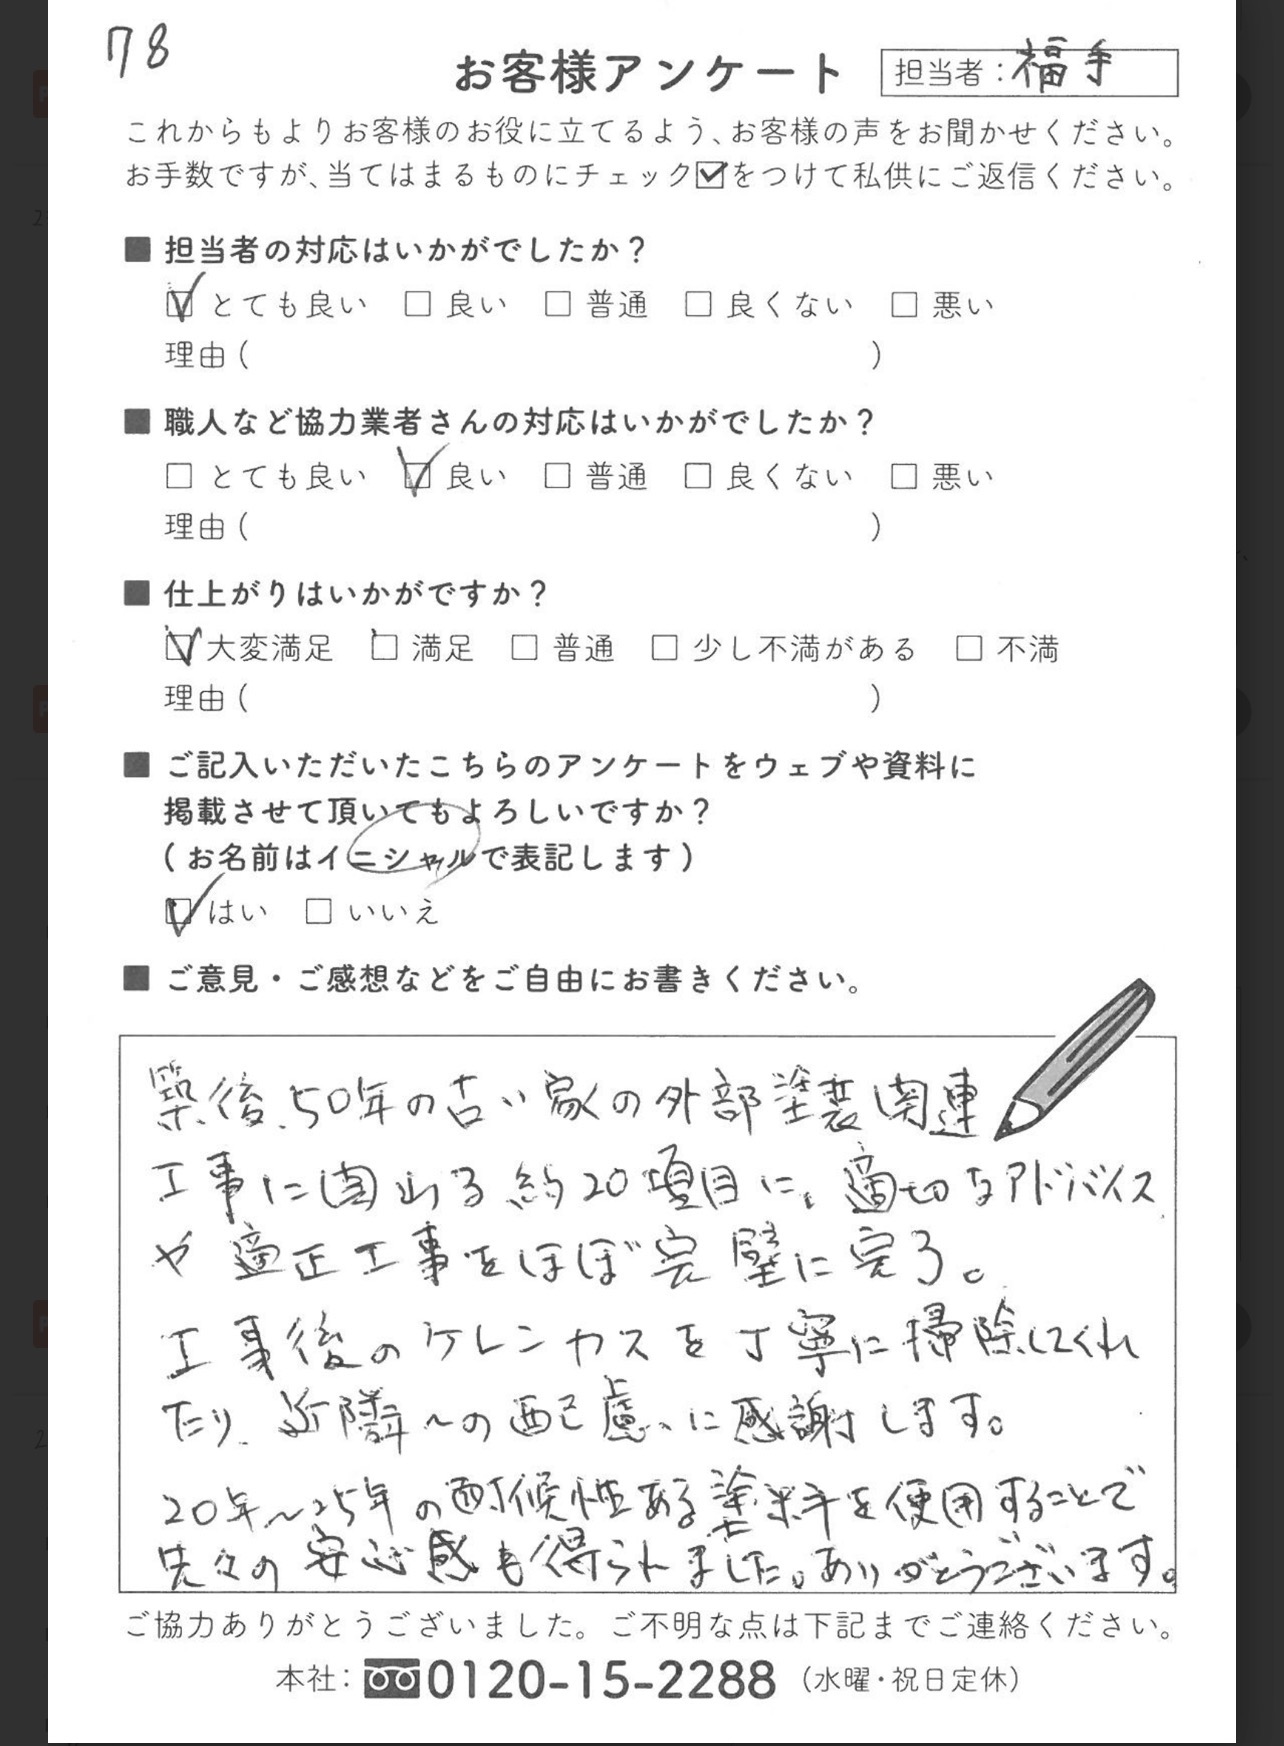 78
お客様アンケート
担当者：福手
これからもよりお客様のお役に立てるよう、お客様の声をお聞かせください。
お手数ですが、当てはまるものにチェック☑をつけて私供にご返信ください。
■ 担当者の対応はいかがでしたか？
☑ とても良い □ 良い □ 普通 □ 良くない □ 悪い
理由（ ）
■ 職人など協力業者さんの対応はいかがでしたか？
□ とても良い ☑ 良い □ 普通 □ 良くない □ 悪い
理由（ ）
■ 仕上がりはいかがですか？
☑ 大変満足 □ 満足 □ 普通 □ 少し不満がある □ 不満
理由（ ）
■ ご記入いただいたこちらのアンケートをウェブや資料に
掲載させて頂いてもよろしいですか？
（お名前はイニシャルで表記します）
☑ はい □ いいえ
■ ご意見・ご感想などをご自由にお書きください。
築後、50年の古い家の外部塗装関連
工事に図山る約20項目に、適切なアドバイス
や適正工事をほぼ完璧に完了。
工事後のケレンカスを丁寧に掃除してくれ
たり、近隣への配慮、に感謝します。
20年〜25年の耐候性ある塗料を使用することで
先々の安心感も得られました。ありがとうございます。
ご協力ありがとうございました。ご不明な点は下記までご連絡ください。
本社：0120-15-2288（水曜・祝日定休）